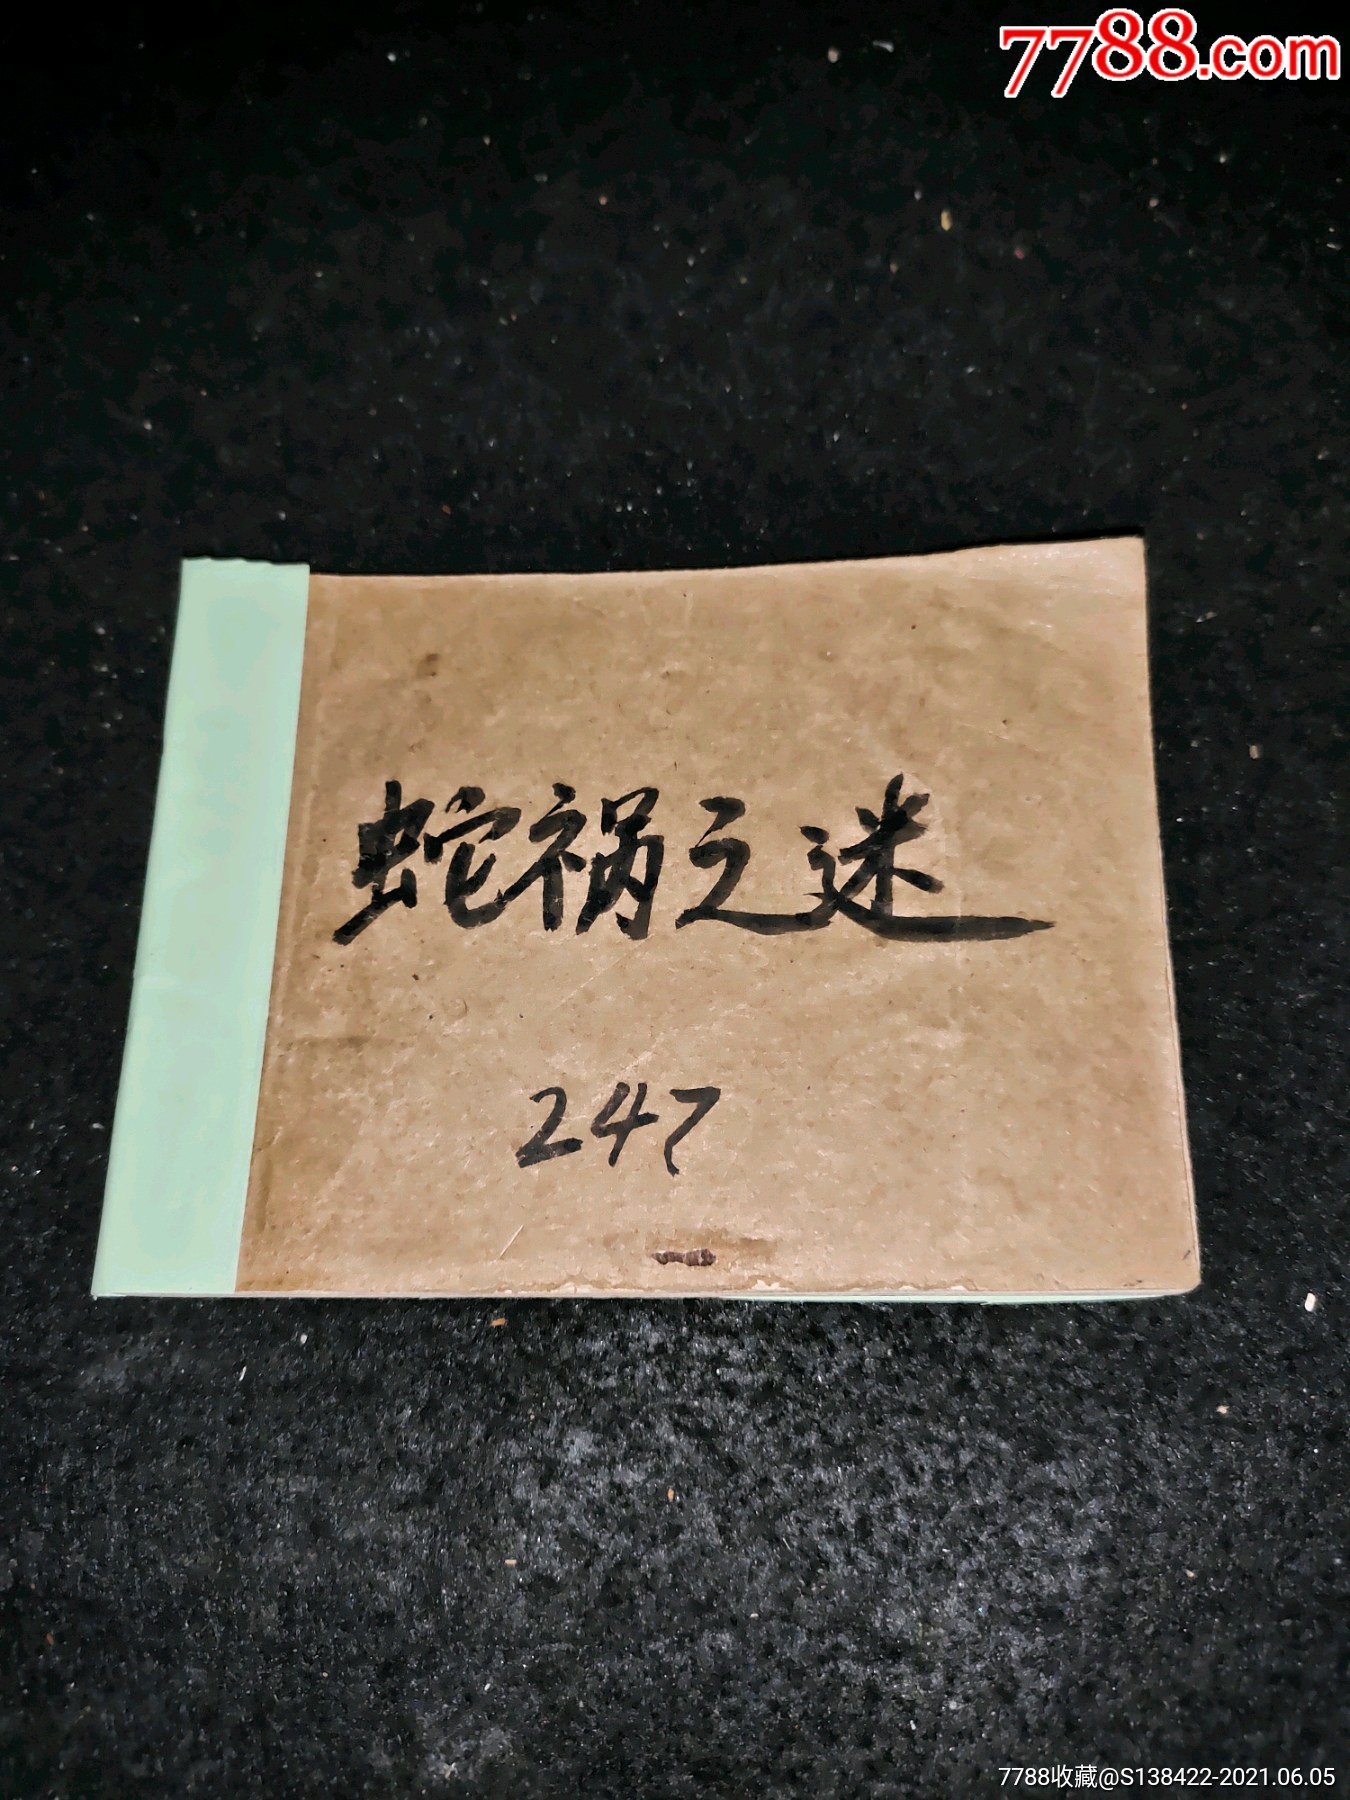 7788.com
蛇祸之迷
247
7788收藏@S138422-2021.06.05